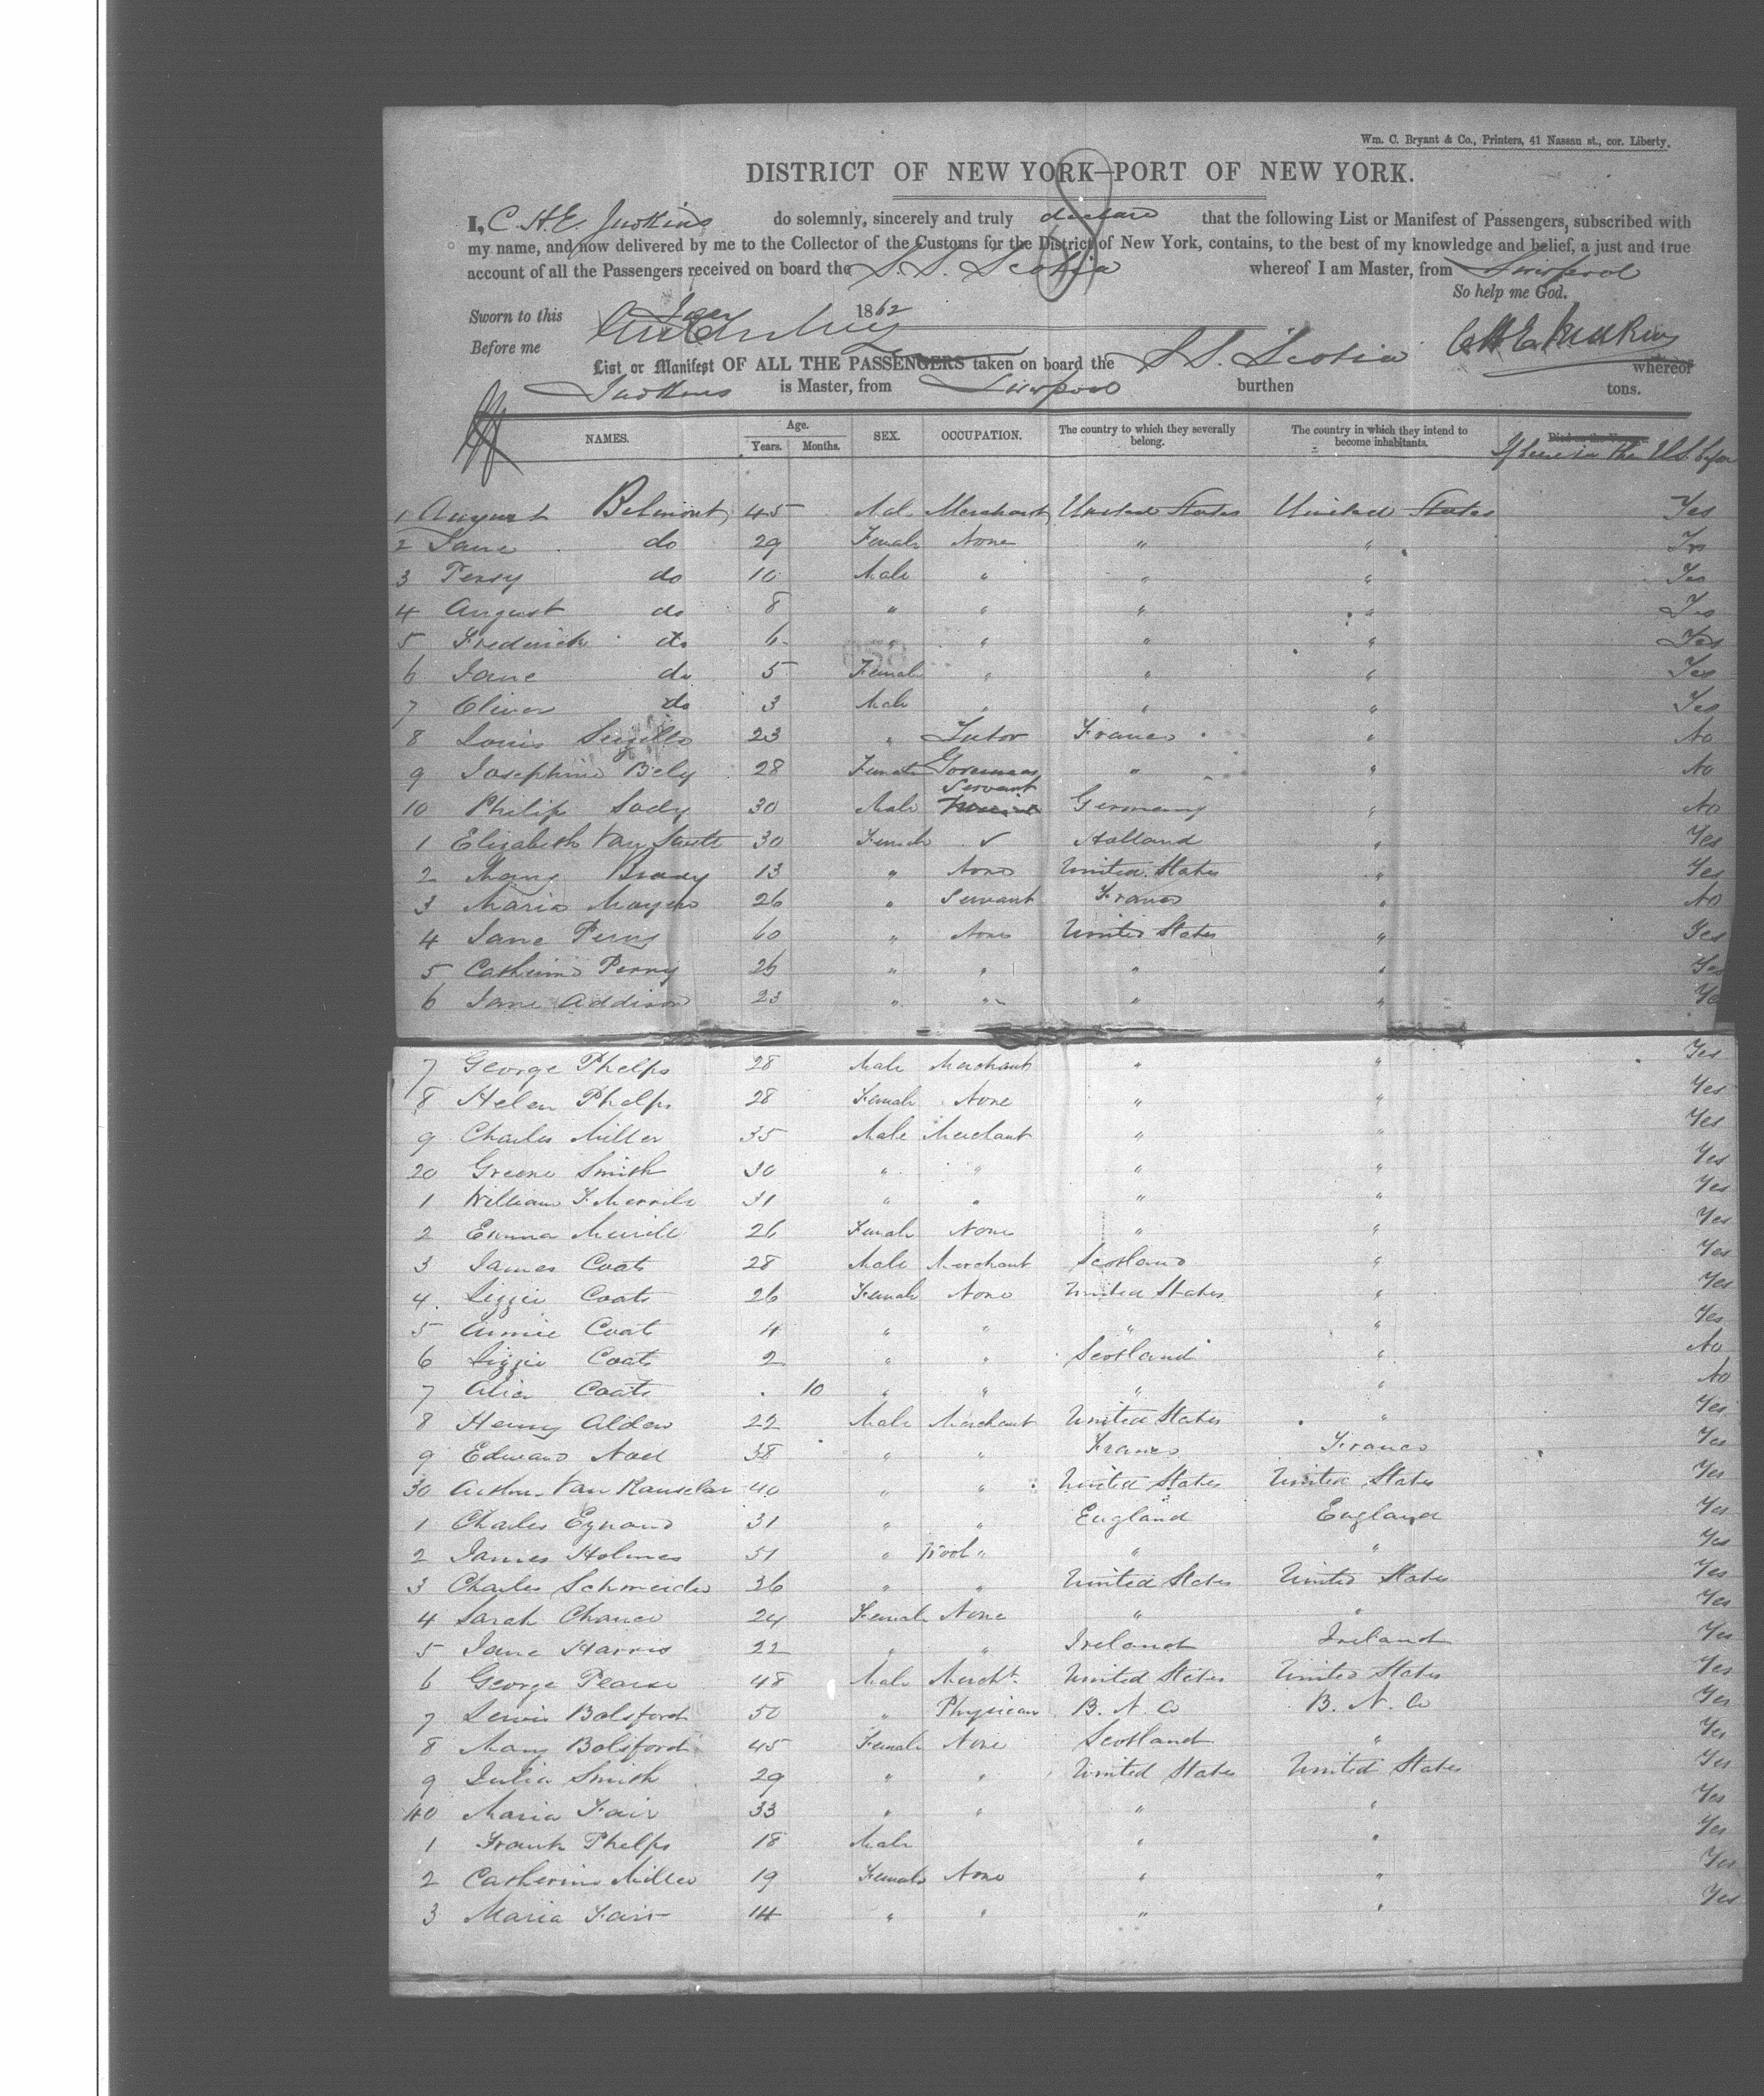 Wm. C. Bryant & Co., Printers, 41 Nassau st., cor. Liberty.
DISTRICT OF NEW YORK—PORT OF NEW YORK.
I, C. H. E. Judkins do solemnly, sincerely and truly declare that the following List or Manifest of Passengers, subscribed with
my name, and now delivered by me to the Collector of the Customs for the District of New York, contains, to the best of my knowledge and belief, a just and true
account of all the Passengers received on board the S. S. Scotia whereof I am Master, from Liverpool
So help me God.
Sworn to this 1862
Before me C H E Judkins
List or Manifest OF ALL THE PASSENGERS taken on board the S S. Scotia whereof
Judkins is Master, from Liverpool burthen tons.
NAMES. Age. Years. Months. SEX. OCCUPATION. The country to which they severally belong. The country in which they intend to become inhabitants. Died on the Voyage. If been in the U.S. before
1 August Belmont 45 Male Merchant United States United States Yes
2 Jane do 29 Female None " " Yes
3 Perry do 10 Male " " " Yes
4 August do 8 " " " " Yes
5 Frederick do 6 " " " " Yes
6 Jane do 5 Female " " " Yes
7 Oliver do 3 Male " " " Yes
8 Louis 23 " Tutor France " No
9 Josephine Bely 28 Female Governess " " No
10 Philip Sody 30 Male Servant Germany " No
1 Elizabeth Van 30 Female ✓ Holland " Yes
2 Mary Brady 13 " None United States " Yes
3 Maria 26 " Servant France " No
4 Jane Perry 60 " None United States " Yes
5 Catherine Perry 26 " " " " Yes
6 Jane Addison 23 " " " " Ye
7 George Phelps 28 Male Merchant " " Yes
8 Helen Phelps 28 Female None " " Yes
9 Charles Miller 35 Male Merchant " " Yes
20 Greene Smith 30 " " " " Yes
1 William F Merrile 31 " " " " Yes
2 Emma Merrile 26 Female None " " Yes
3 James Coats 28 Male Merchant Scotland " Yes
4. Lizzie Coats 26 Female None United States " Yes
5 Annie Coats 4 " " " " Yes
6 Lizzie Coats 2 " " Scotland " No
7 Alice Coats . 10 " " " " No
8 Henry Alden 22 Male Merchant United States " Yes
9 Edward Noel 38 " " France France Yes
30 Van Ranselar 40 " " United States United States Yes
1 Charles Eynaud 31 " " England England Yes
2 James Holmes 51 " " " " Yes
3 Charles Schneider 36 " " United States United States Yes
4 Sarah Chance 24 Female None " " Yes
5 Jane Harris 22 " " Ireland Ireland Yes
6 George Pearse 48 Male Mercht. United States United States Yes
7 Lewis Bolsford 50 " Physician B. N. A B. N. A Yes
8 Mary Bolsford 45 Female None Scotland " Yes
9 Julia Smith 29 " " United States United States Yes
40 Maria Fair 33 " " " " Yes
1 Frank Phelps 18 Male " " Yes
2 Catherine Miller 19 Female None " " Yes
3 Maria Fair 14 " " " " Yes